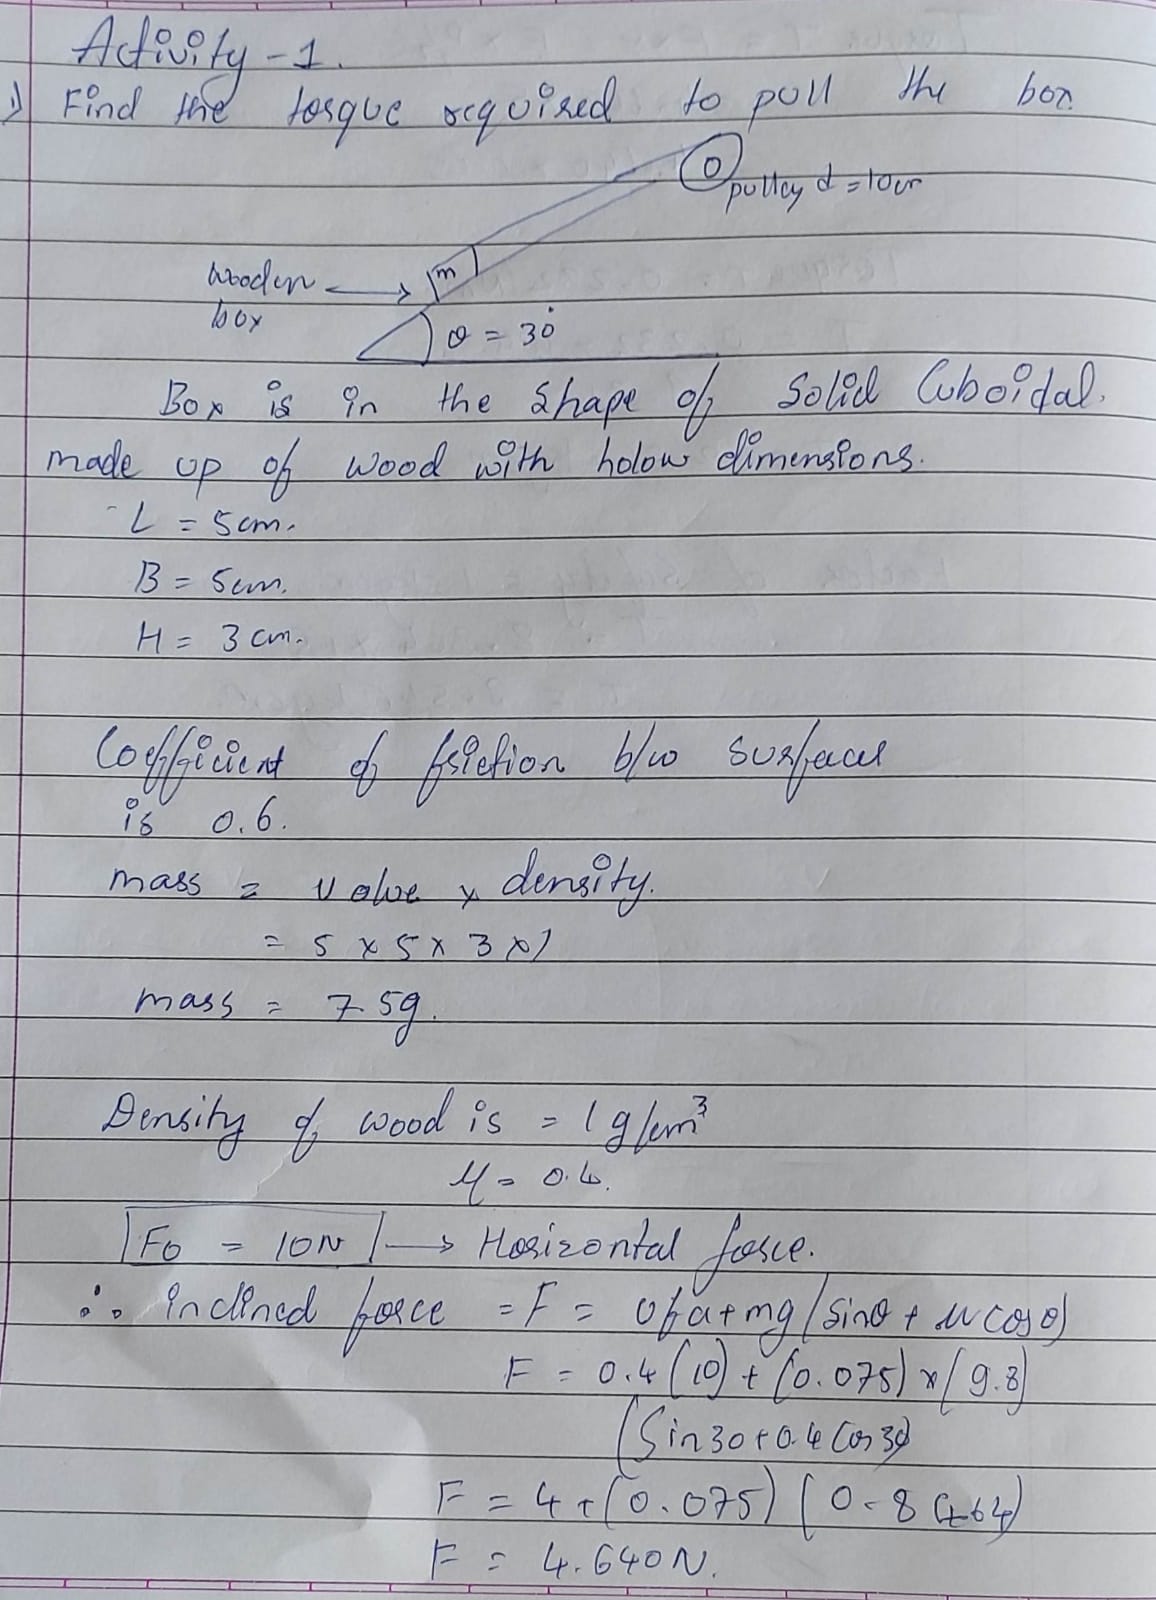 Activity - 1.
1) Find the torque required to pull the box
O
pulley d = 10cm
m
wooden
box
θ = 30°
Box is in the shape of Solid Cuboidal.
made up of wood with holow dimensions.
L = 5cm.
B = 5cm.
H = 3 cm.
Coefficient of friction b/w surfaces
is 0.6.
mass = volue x density.
= 5 x 5 x 3 x 1
mass = 75g.
Density of wood is = 1 g/cm³
μ = 0.4.
F0 = 10N → Horizontal force.
∴ inclined force = F = + mg (sinθ + μ cosθ)
F = 0.4 (10) + (0.075) x (9.8)
(Sin30 + 0.4 Cos30)
F = 4 + (0.075) (0.8464)
F = 4.640N.